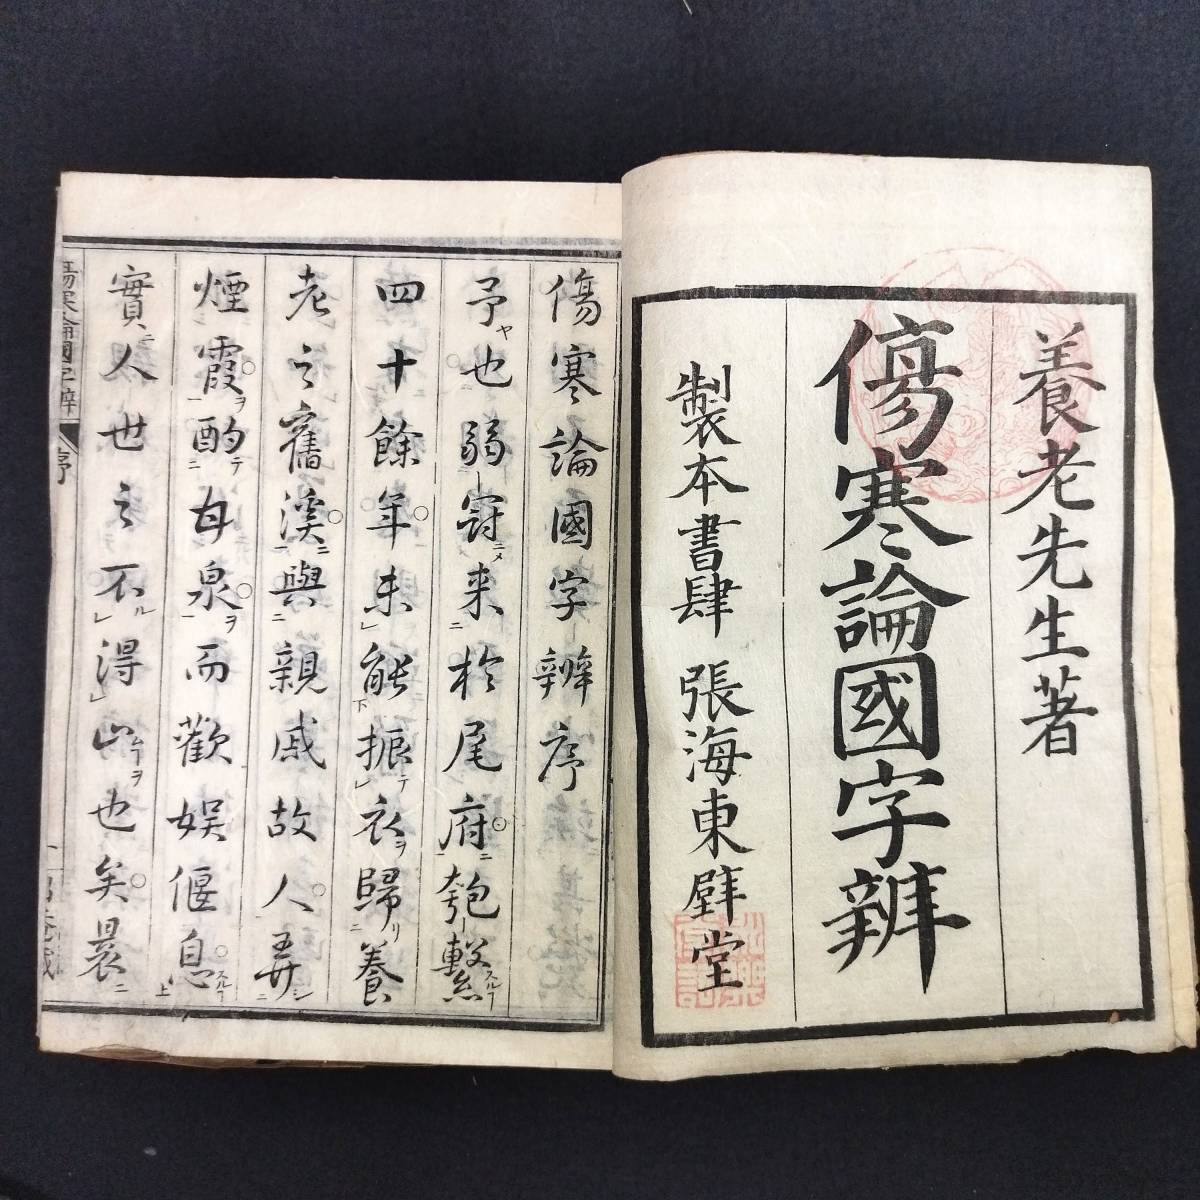 養老先生著
傷寒論國字辨
製本書肆 張海東璧堂
傷寒論國字辨序
予也弱冠来於尾府匏繫
四十餘年未能振衣歸養
老之舊溪與親戚故人弄
煙霞酌甘泉而歡娯偃息
實人世之不得止也矣晨
傷寒論國字辨 序